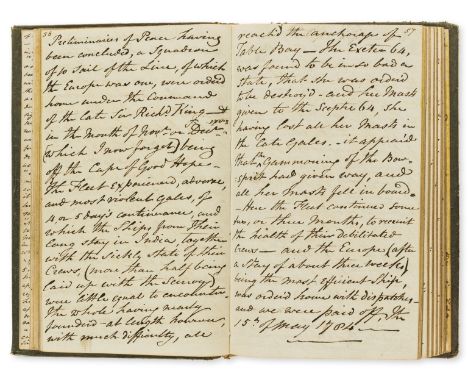 56
Preliminaries of Peace having
been concluded, a Squadron
of 10 Sail of the Line, of which
the Europe was one, were ordered
home under the Command
of the late Sir Richd King &
in the month of Novr or Decr
(which I now forget) being
off the Cape of Good Hope -
the Fleet experienced, adverse,
and most violent Gales, of
4 or 5 days continuance, and
which the Ships from their
long stay in India, together
with the Sickly State of their
Crews, (more than half being
laid up with the Scurvy)
were little equal to encounter
the whole having nearly
foundered - at length however,
with much difficulty, all
57
reached the anchorage of
Table Bay - The Exeter 64,
was found to be in so bad a
state, that she was ordered
to be destroy'd - and her Masts
given to the Sceptre 64, she
having lost all her Masts in
the late Gales. - it appeared
that the Gammoning of the Bow-
sprit had given way, and
all her Masts fell in board.
- Here the Fleet continued some
two, or three Months, to recruit
the health of their debilitated
Crews - and the Europe (after
a Stay of about three weeks)
being the most efficient Ship
was ordered home with dispatches
and we were paid off, the
15th of May 1784